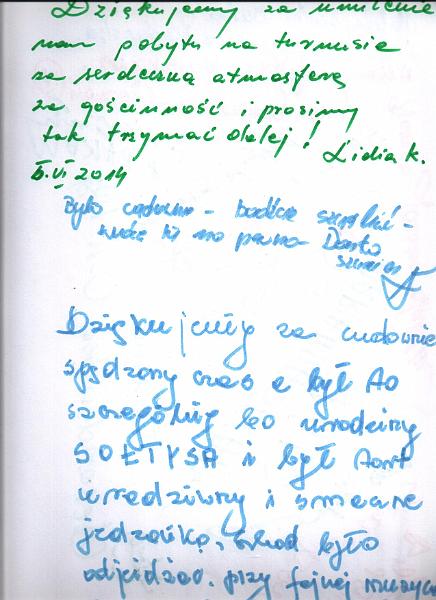 Dziękujemy za umilenie
nam pobytu na turnusie
za serdeczną atmosferę
za gościnność i prosimy
tak trzymać dalej!
Lidia K.
5.VI 2014
Było cudowno - bądźcie
na pewno
Dziękujemy za cudownie
spędzony czas a był to
szczególny bo urodziny
SOŁTYSA i był tort
urodzinowy i smaczne
jedzonko, szkoda było
odjeżdżać. przy fajnej muzyce